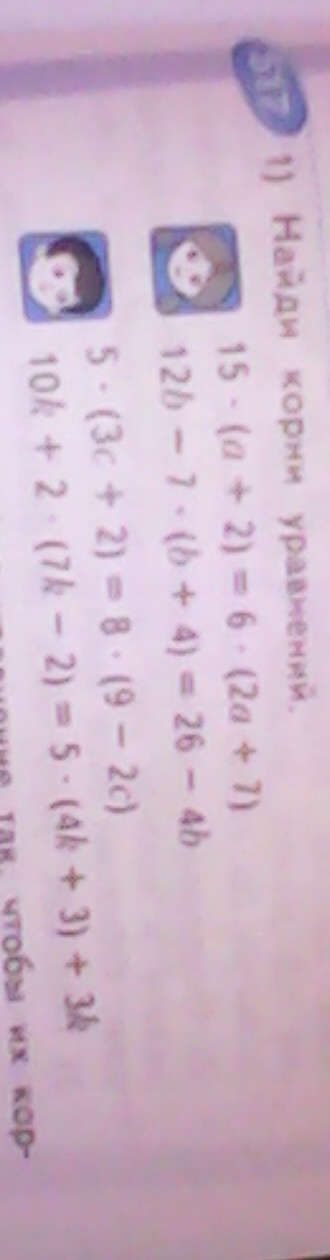 1) Найди корни уравнений.
15 · (a + 2) = 6 · (2a + 7)
12b − 7 · (b + 4) = 26 − 4b
5 · (3c + 2) = 8 · (9 − 2c)
10k + 2 · (7k − 2) = 5 · (4k + 3) + 3k
так, чтобы их кор-